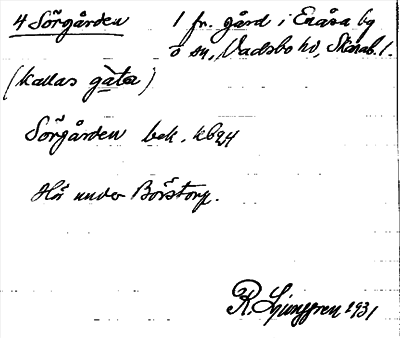 4 Sörgården 1 fr. gård i Enåsa by
o sn, Vadsbo hd, Skarab. l.
(kallas gåla)
Sörgården bek. kb94
Hör under Börstorp.
R. Ljunggren 1931